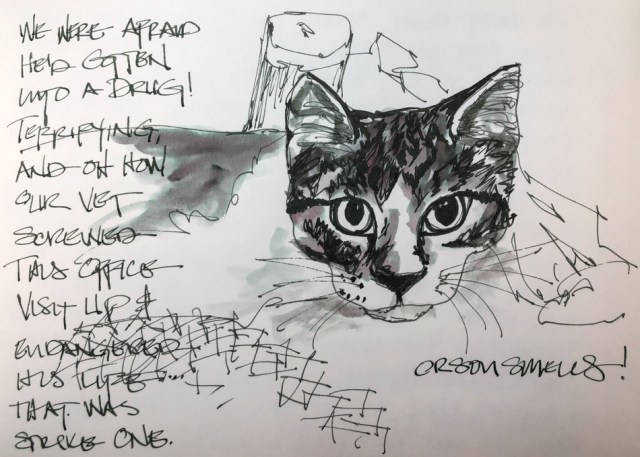 WE WERE AFRAID
HE'D GOTTEN
INTO A DRUG!
TERRIFYING,
AND OH HOW
OUR VET
SCREWED
THIS OFFICE
VISIT UP &
ENDANGERED
HIS LIFE...
THAT WAS
STRIKE ONE.
ORSON SMELLS!